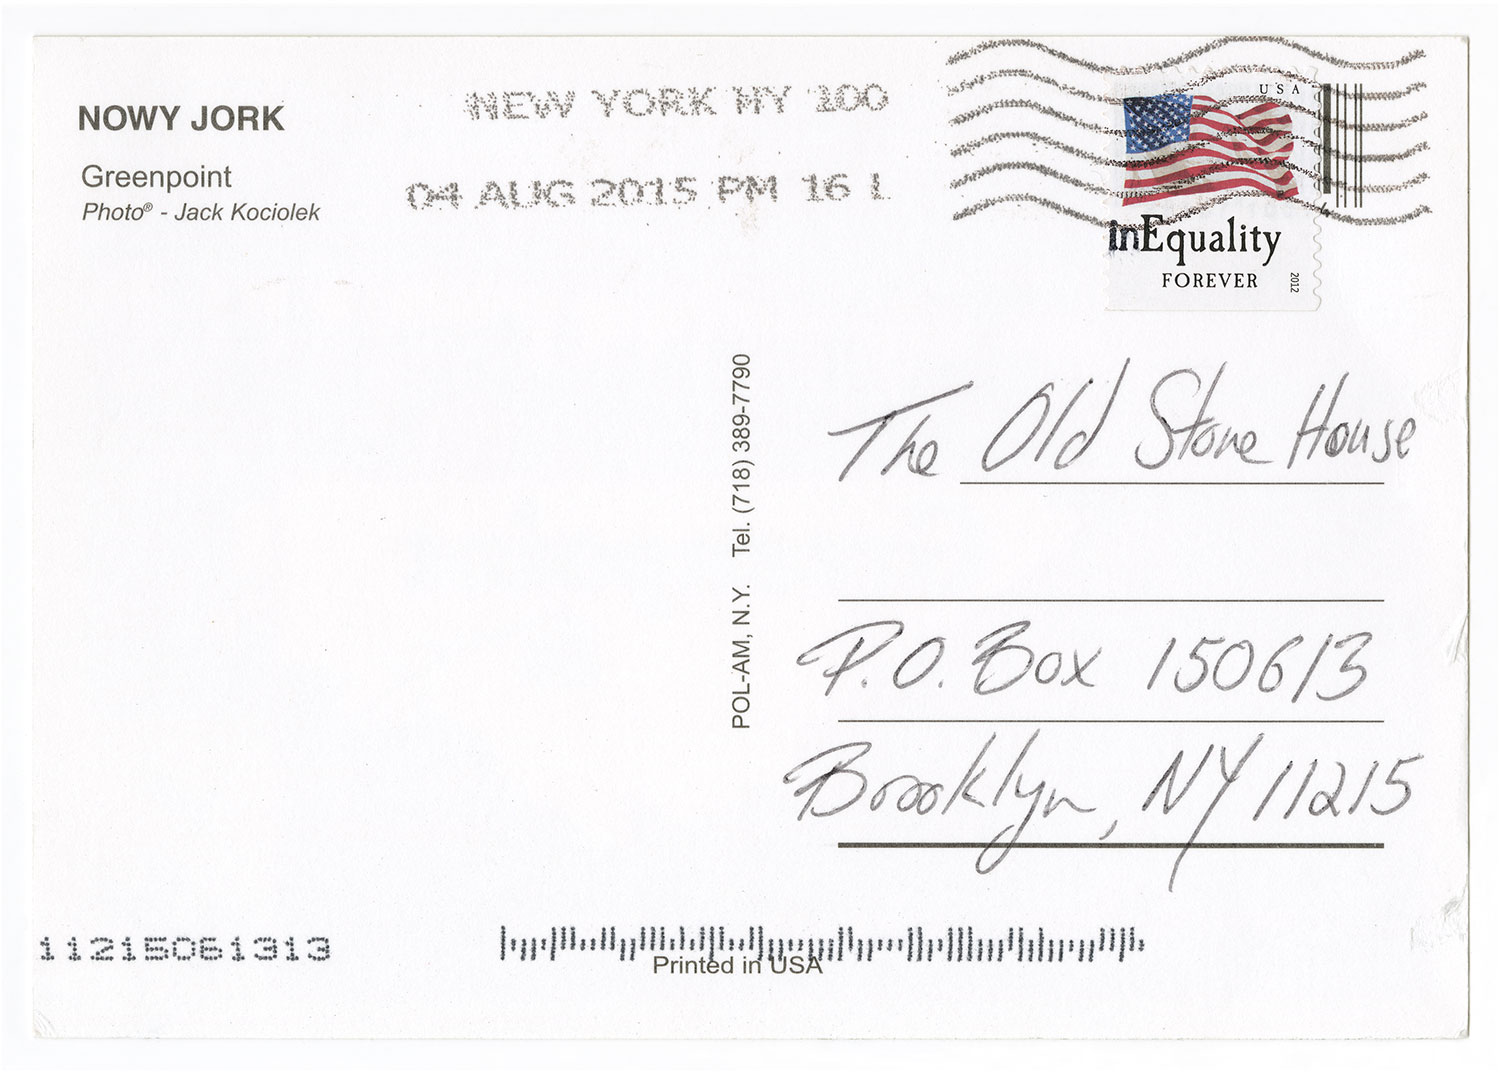 NOWY JORK
Greenpoint
Photo® - Jack Kociolek
NEW YORK NY 100
04 AUG 2015 PM 16 L
USA
inEquality
FOREVER
2012
POL-AM, N.Y. Tel. (718) 389-7790
The Old Stone House
P.O. Box 150613
Brooklyn, NY 11215
11215061313
Printed in USA